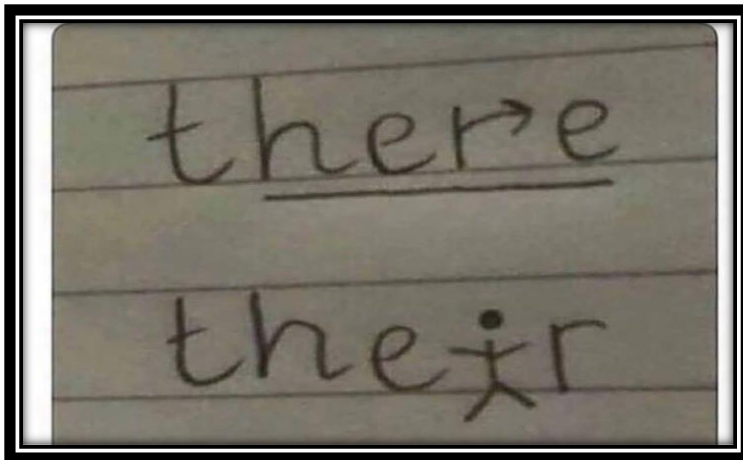 there
their